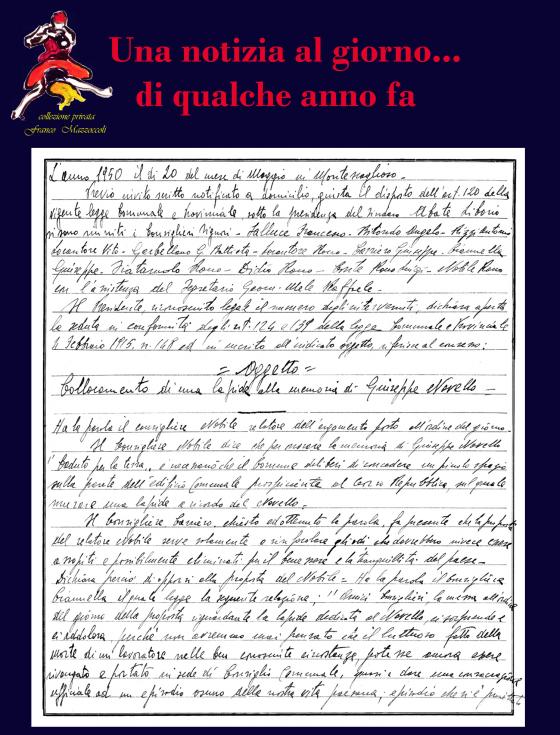 Una notizia al giorno...
di qualche anno fa
collezione privata
Franco Mazzoccoli
L'anno 1950 il dì 20 del mese di Maggio in Montescaglioso.
Previo invito scritto notificato a domicilio, giusta il disposto dell'art. 120 della
vigente legge Comunale e Provinciale sotto la presidenza del sindaco Abate
si sono riuniti i Consiglieri Signori - Francesco - Angelo -
Locantore Vito - G. Battista - Locantore - Carriero Giuseppe - Ciannella
Giuseppe - - Nobile
con l'assistenza del Segretario Geom. Mele Raffaele -
Il Presidente, riconosciuto legale il numero degli intervenuti, dichiara aperta
la seduta in conformità degli art. 124 e della legge Comunale e Provinciale
4 Febbraio 1915, n. 148 ed in merito all'indicato oggetto, riferisce al consesso:
= Oggetto =
Collocamento di una lapide alla memoria di Giuseppe Novello -
Ha la parola il consigliere Nobile relatore dell'argomento posto all'ordine del giorno.
Il Consigliere Nobile dice che per onorare la memoria di Giuseppe Novello
"Caduto per la terra, è necessario che il Comune deliberi di concedere un piccolo spazio
sulla parete dell'edificio Comunale prospiciente al Corso Repubblica, sul quale
murare una lapide a ricordo del Novello.
Il Consigliere Carriero, chiesta ed ottenuta la parola, fa presente che la proposta
del relatore Nobile serve solamente a rinfocolare gli odi che dovrebbero invece essere
assopiti e possibilmente eliminati per il benessere e la tranquillità del paese -
Dichiara perciò di opporsi alla proposta del Nobile = Ha la parola il Consigliere
Ciannella il quale legge la seguente relazione: "Amici Consiglieri la messa all'ordine
del giorno della proposta riguardante la lapide dedicata al Novello ci sorprende e
ci addolora perchè non avremmo mai pensato che il luttuoso fatto della
morte di un lavoratore nelle ben conosciute circostanze, potesse ancora essere
rivangato e portato in sede di Consiglio Comunale, quasi a dare una consacrazione
ufficiale ad un episodio oscuro della nostra vita paesana; episodio che si è